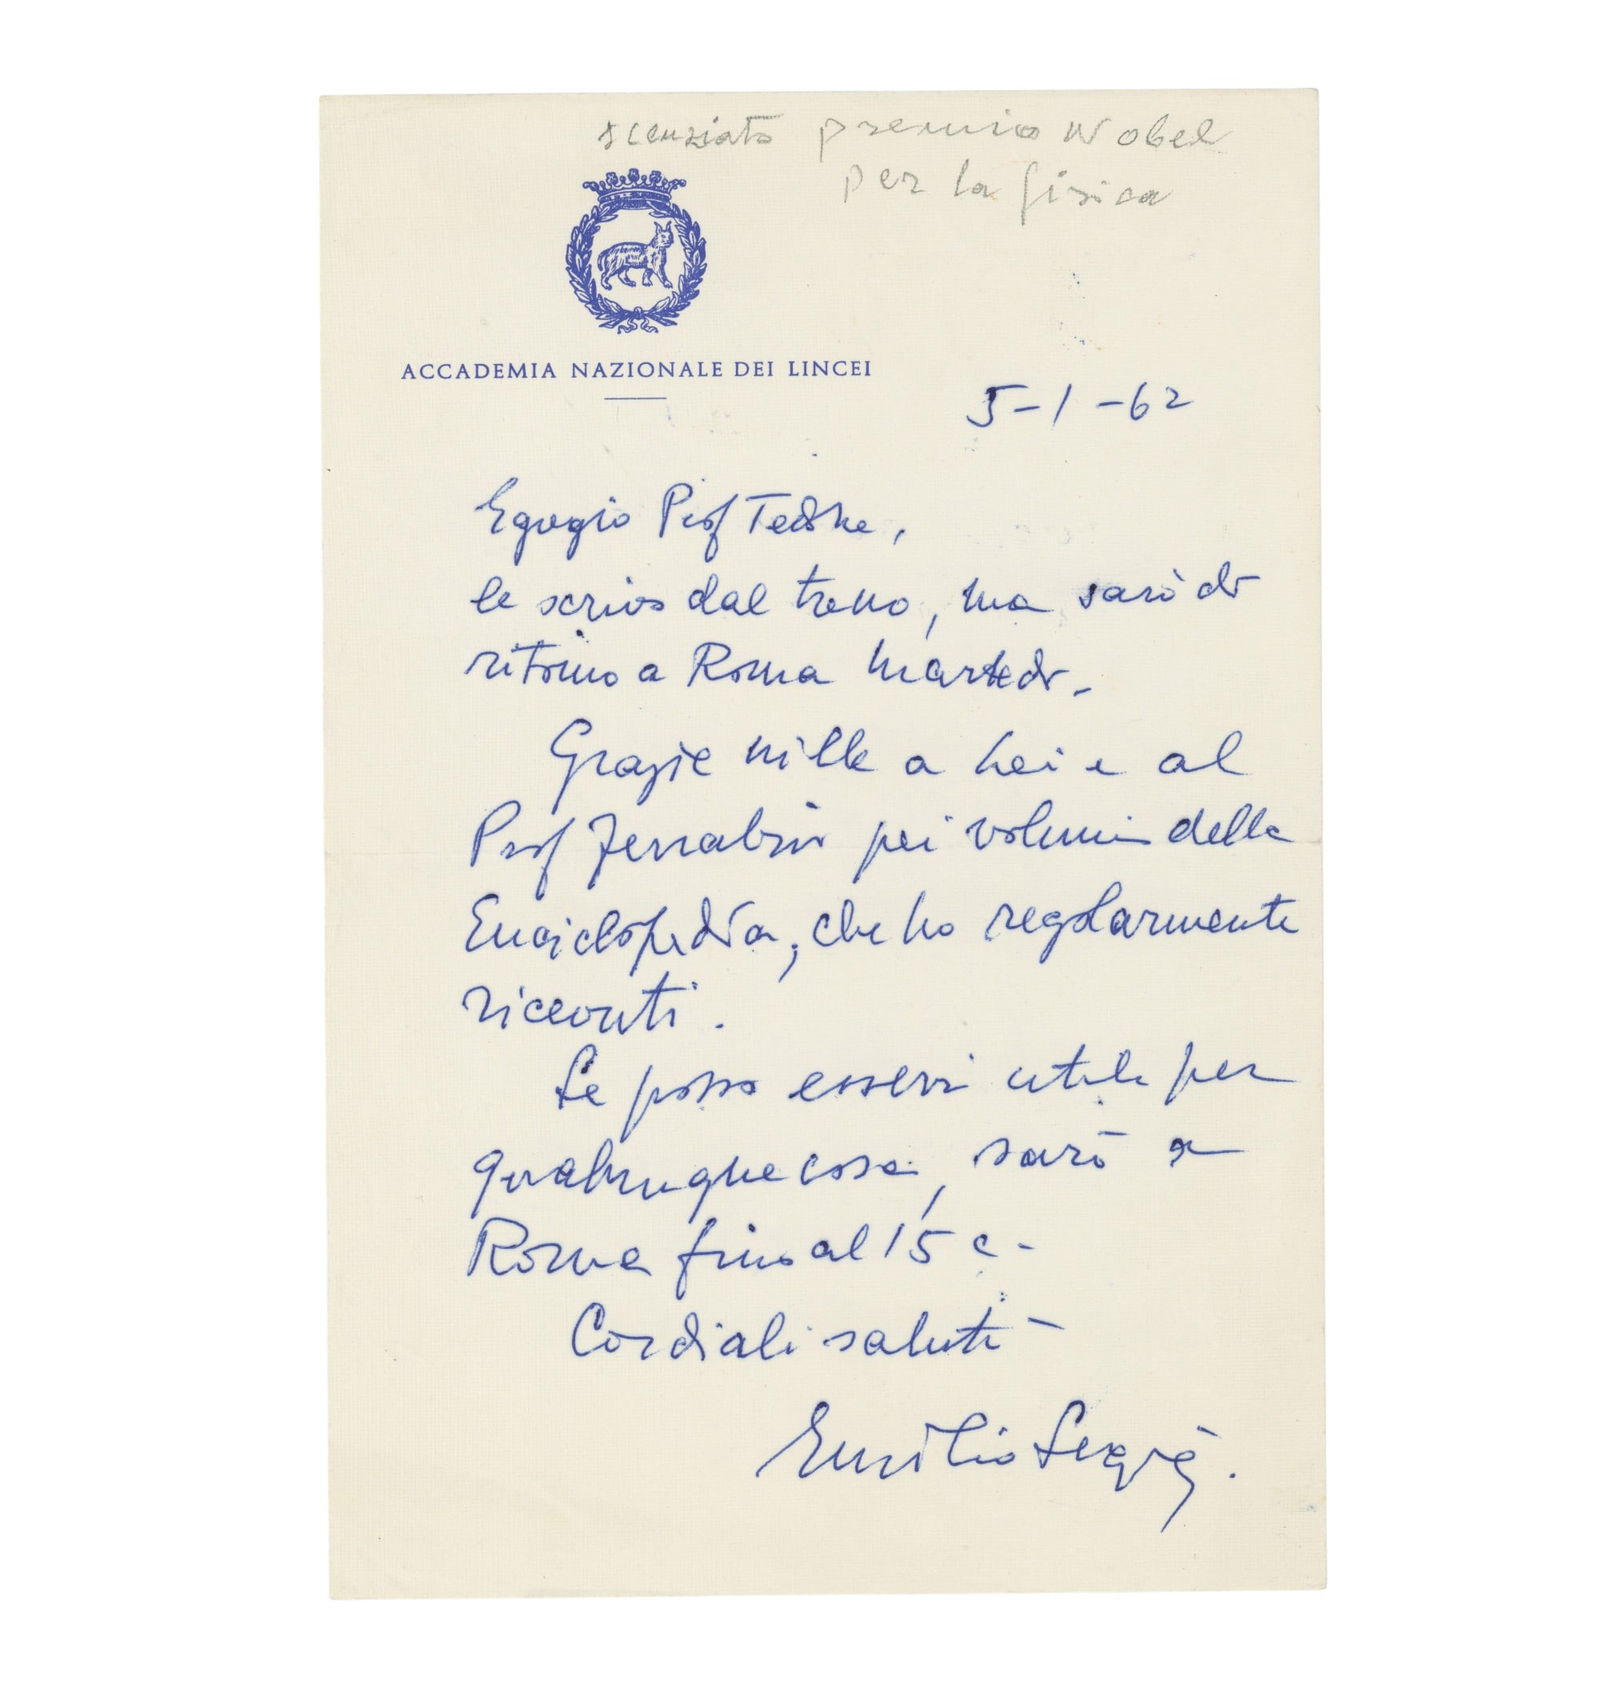 scenziato premio Nobel
per la fisica
ACCADEMIA NAZIONALE DEI LINCEI
5-1-62
Egregio Prof
le scrivo dal treno, ma sarò di
ritorno a Roma Martedì.
Grazie mille a Lei e al
Prof Ferrabino pei volumi della
Enciclopedia, che ho regolarmente
ricevuti.
Se posso esservi utile per
qualunque cosa, sarò a
Roma fino al 15 c.
Cordiali saluti
Emilio Segrè.